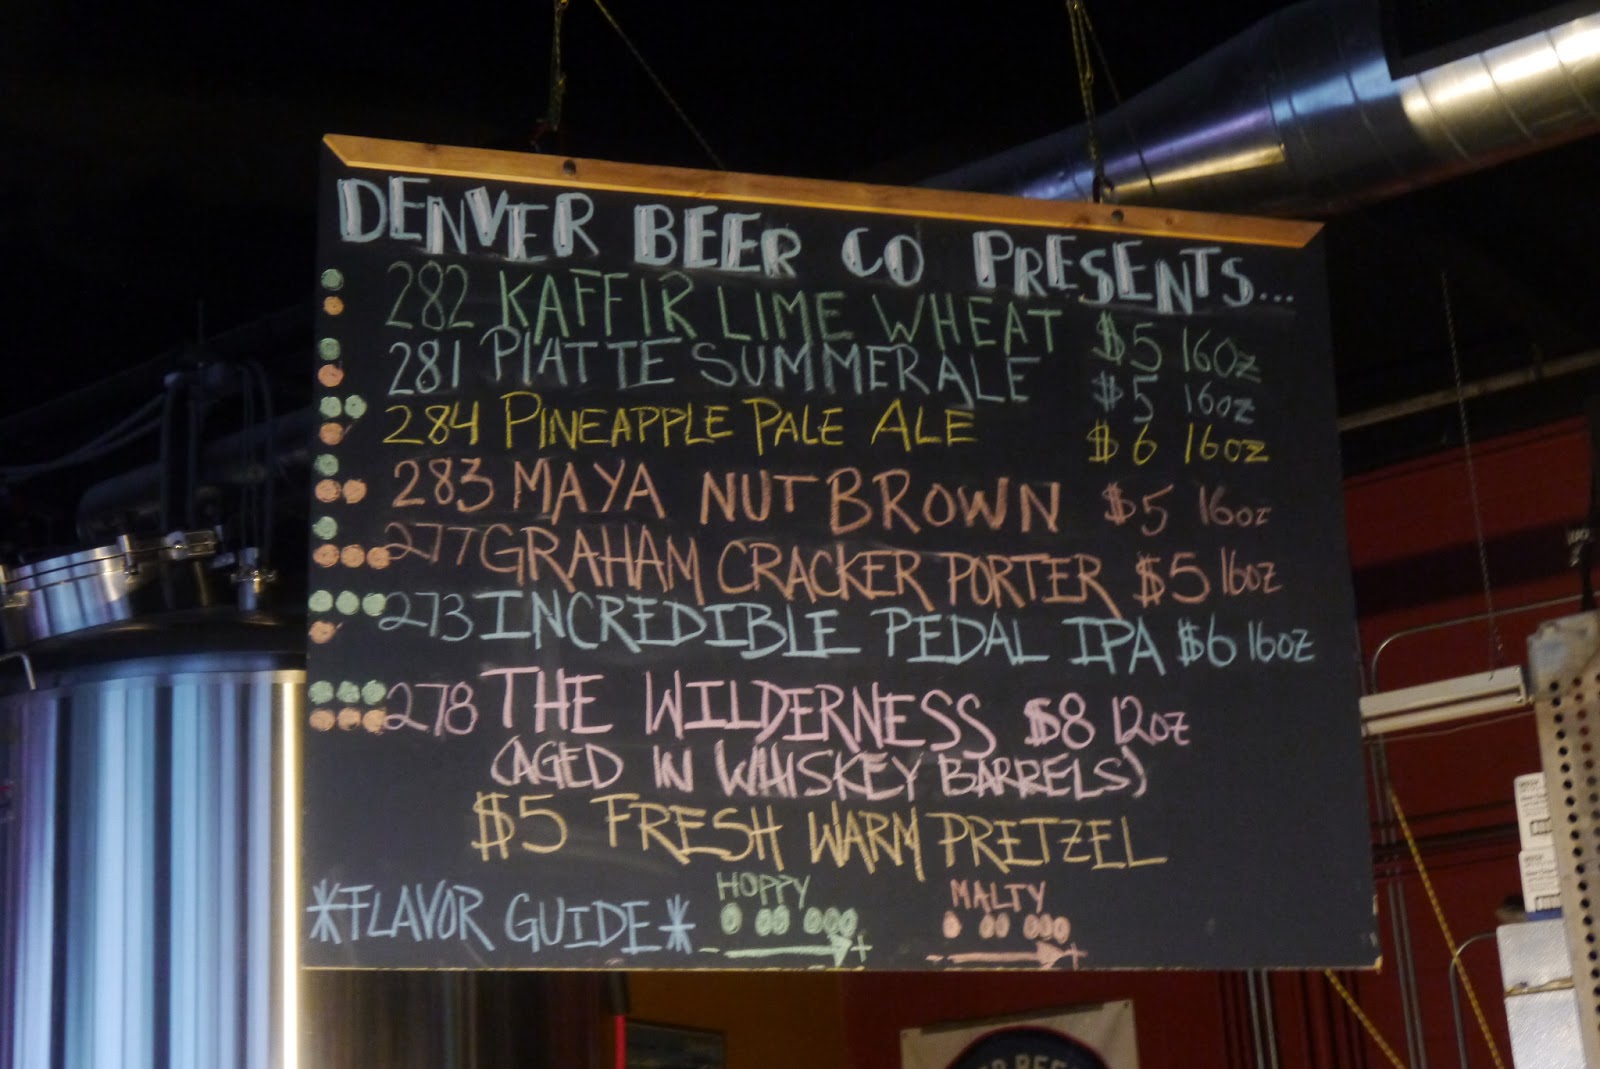 DENVER BEER CO PRESENTS...
282 KAFFIR LIME WHEAT $5 16OZ
281 PLATTE SUMMER ALE $5 16OZ
284 PINEAPPLE PALE ALE $6 16OZ
283 MAYA NUT BROWN $5 16OZ
277 GRAHAM CRACKER PORTER $5 16OZ
273 INCREDIBLE PEDAL IPA $6 16OZ
278 THE WILDERNESS $8 12OZ
(AGED IN WHISKEY BARRELS)
$5 FRESH WARM PRETZEL
*FLAVOR GUIDE* HOPPY MALTY
- + - +